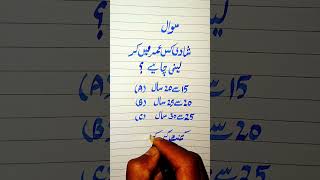 سوال
شادی کس عمر میں کر
لینی چاہیے ؟
15 سے 20 سال (A)
20 سے 25 سال (B)
25 سے 30 سال (C)